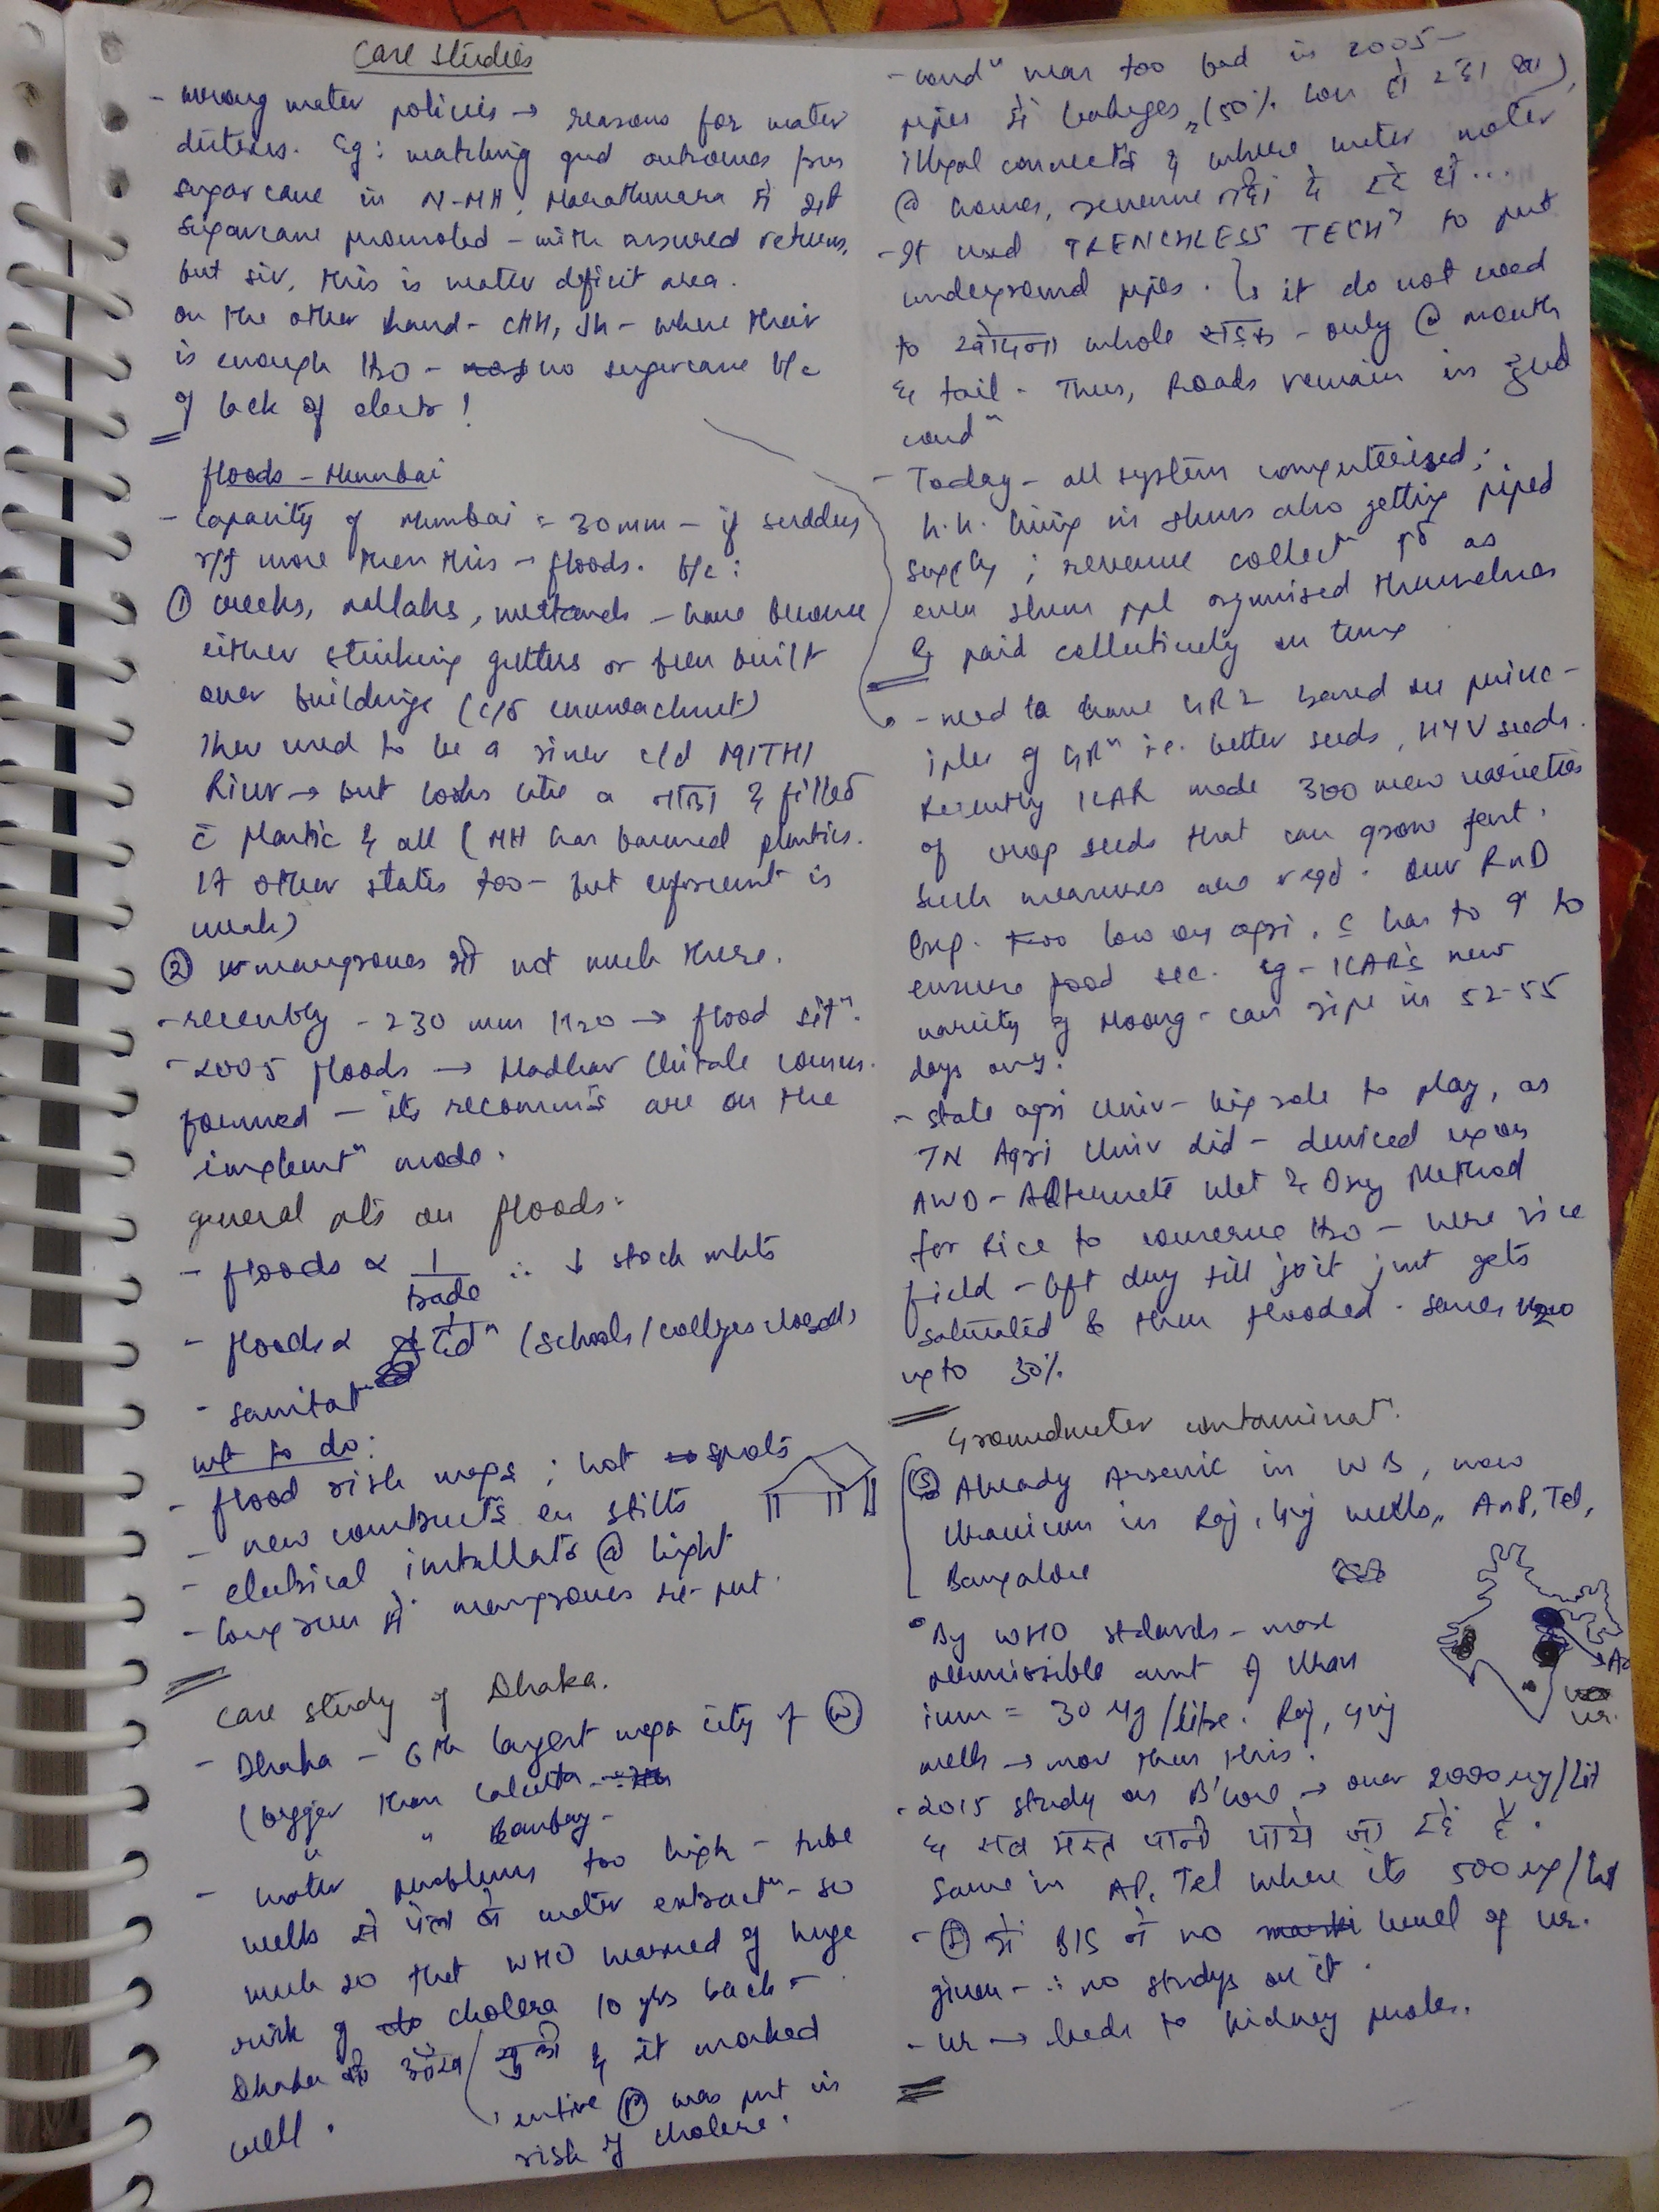 Case Studies
- wrong water policies → reasons for water
distress. Eg: matching gud outcomes from
sugarcane in N-MH, Marathwara में भी
sugarcane promoted - with assured returns,
but sir, this is water deficit area.
on the other hand - CHH, Jh - where their
is enough H2O - no sugarcane b/c
of lack of electr !
floods - Mumbai
- capacity of Mumbai = 30mm - if sudden
r/f more then this → floods. b/c :
① creeks, nallahs, wetlands - have become
either stinking gutters or been built
over buildings (c/d encroachment)
there used to be a river c/d MITHI
River → but looks like a नाला & filled
c̄ plastic & all (MH has banned plastics.
17 other states too - but enforcement is
weak)
② mangroves भी not much there.
- recently - 230 mm H20 → flood sitⁿ.
- 2005 floods → Madhav Chitale comm.
formed - its recomm's are on the
implemtⁿ mode.
general pts on floods -
- floods ∝ 1/trade ∴ ↓ stock mkts
- floods ∝ 1/edⁿ (schools/colleges closed)
- sanitatⁿ
wt to do:
- flood risk maps ; hot spots
- new constructs on stilts
- electrical installats @ hight
- long run में mangroves re-put.
case study of Dhaka.
- Dhaka - 6th largest mega city of Ⓦ
(bigger than Calcutta -
" " Bombay -
- water problems too high - tube
wells से water extractⁿ - so
much so that WHO warned of huge
risk of cholera 10 yrs back -
Dhaka & it worked
well.
entire Ⓟ was put in
risk of cholera.
- condⁿ was too bad in 2005 -
pipes में leakages, (50% loss हो रहा था),
illegal connects & where water meter
@ homes, revenue नहीं दे रहे थे...
- It used TRENCHLESS TECHⁿ to put
underground pipes. ↳ it do not need
to खोदना whole सड़क - only @ mouth
& tail - Thus, Roads remain in gud
condⁿ
- Today - all system computerised;
h.h. living in slums also getting piped
supply ; revenue collectⁿ ↑d as
even slum ppl organised themselves
& paid collectively on time
- need to have GR2 based on princ-
iples of GRⁿ i.e. better seeds, HYV seeds.
Recently ICAR made 300 new varieties
of crop seeds that can grow fast.
such measures are reqd. Our RnD
Exp. too low on agri. c̄ has to ↑ to
ensure food sec. eg - ICAR's new
variety of Moong - can ripe in 52-55
days only.
- state agri Univ - big role to play, as
TN Agri Univ did - deviced upon
AWD - Alternate Wet & Dry Method
for Rice to conserve H2O - here rice
field - left dry till jo it just gets
saturated & then flooded. saves H20
upto 30%
Groundwater contaminatⁿ.
⑤ Already Arsenic in WB, now
Uranium in Raj, Guj wells,, AnP, Tel,
Bangalore
• By WHO stdards - max
permissible amt of Uran
ium = 30 ug/litre. Raj, Guj
wells → mor than this.
Ur.
- 2015 study on B'lore → over 2000 ug/lit
Same in AP, Tel where its 500 ug/lit
- Ⓘ में BIS ने no level of Ur.
given - ∴ no studys on it.
- Ur → leads to kidney probs.